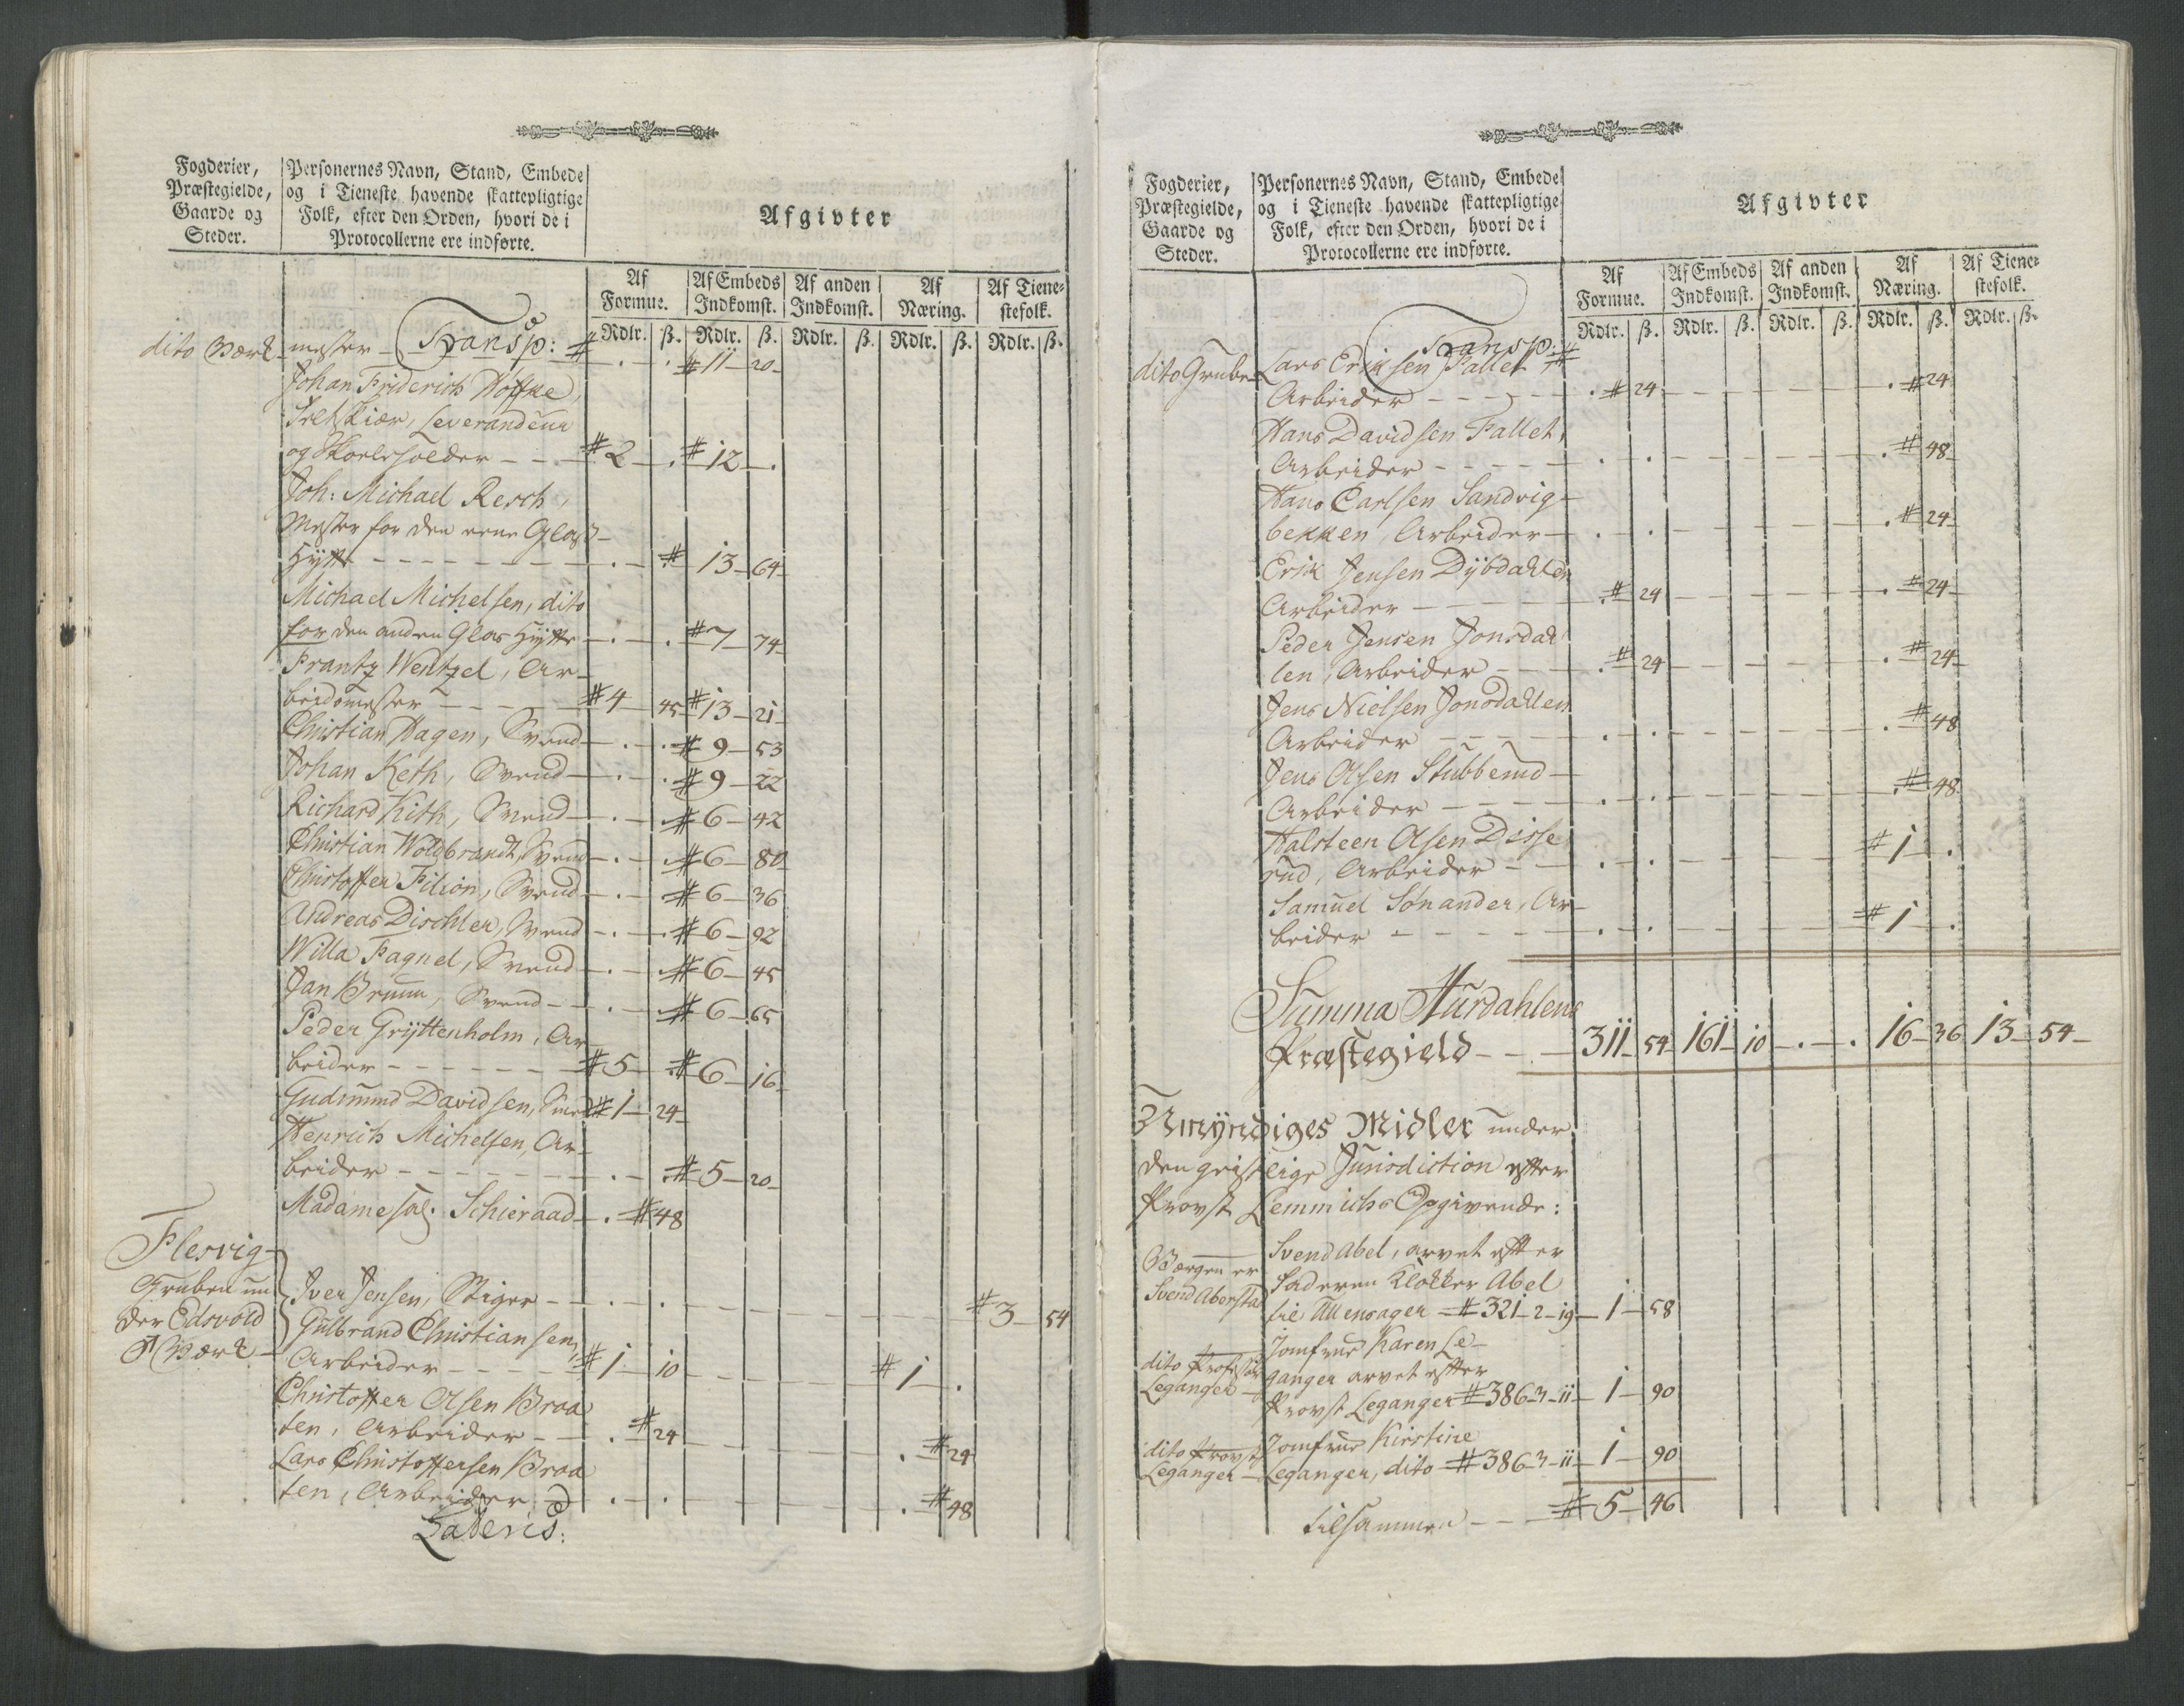 Fogderier,
Præstegielde,
Gaarde og
Steder.
Personernes Navn, Stand, Embede
og i Tieneste havende skattepligtige
Folk, efter den Orden, hvori de i
Protocollerne ere indførte.
Afgivter
Af Formue.
Af Embeds Indkomst.
Af anden Indkomst.
Af Næring.
Af Tiene-stefolk.
Rdlr. ß. Rdlr. ß. Rdlr. ß. Rdlr. ß. Rdlr. ß.
Transp:
dito Værk mester # 11 20
Johan Friderich Høffke,
Leverandeur
og Skoeleholder # 2 # 12
Joh: Michael Resch,
Mester for den eene Glas
Hytte # 13 64
Michael Michelsen, dito
for den anden Glas Hytte # 7 74
Frantz Wentzel, Ar-
beidsmester # 4 45 # 13 21
Christian Hagen, Svend # 9 53
Johan Keth, Svend # 9 22
Richard Kith, Svend # 6 42
Christian Woldbrandt, Svend # 6 80
Christoffer Filion, Svend # 6 36
Andreas Dischler, Svend # 6 92
Willa Fagnel, Svend # 6 45
Jan Brunn, Svend # 6 65
Peder Gryttenholm, Ar-
beider # 5 # 6 16
Gudmund Davidsen, Smed # 1 24
Henrich Michelsen, Ar-
beider # 5 20
Madame sal. Schieraad # 48
Flesvig
Gruben un
der Edsvold
Værk
Iver Jensen, Stiger # 3 54
Gulbrand Christiansen,
Arbeider # 1 10 # 1
Christoffer Olsen Braa
ten, Arbeider # 24 # 24
Lars Christoffersen Braa
ten, Arbeider # 48
Lateris:
Fogderier,
Præstegielde,
Gaarde og
Steder.
Personernes Navn, Stand, Embede
og i Tieneste havende skattepligtige
Folk, efter den Orden, hvori de i
Protocollerne ere indførte.
Afgivter
Af Formue.
Af Embeds Indkomst.
Af anden Indkomst.
Af Næring.
Af Tiene-stefolk.
Rdlr. ß. Rdlr. ß. Rdlr. ß. Rdlr. ß. Rdlr. ß.
Transp: #
dito Grube Lars Eriksen Fallet
Arbeider # 24 # 24
Hans Davidsen Fallet,
Arbeider # 48
Hans Carlsen Sandvig-
bekken, Arbeider # 24
Erik Jensen Dybdahlen
Arbeider # 24 # 24
Peder Jensen Jonsdah
len, Arbeider # 24 # 24
Jens Nielsen Jonsdahlen
Arbeider # 48
Jens Olsen Stubberud
Arbeider # 48
Halsteen Olsen Disse
rud, Arbeider # 1
Samuel Sønander, Ar-
beider # 1
Summa Hurdahlens
Præstegield 311 54 161 10 16 36 13 54
Umyndiges Midler under
den geistlige Jurisdiction efter
Provst Lemmichs Opgivende:
Værgen er
Svend Abel, arvet efter
Faderen Klokker Abel
til Ullensager # 321-2-19 1 58
dito
Leganger
Jomfrue Karen Le-
ganger arvet efter
Provst Leganger # 386-3-11 1 90
dito Provst
Leganger
Jomfrue Kirstine
Leganger, dito # 386-3-11 1 90
tilsammen # 5 46